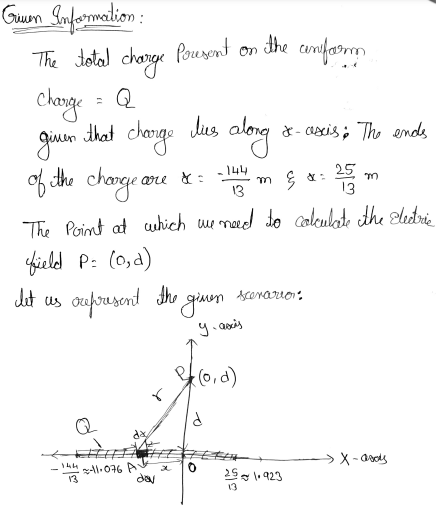 Given Information :
The total charge Present on the uniform
charge = Q
given that charge lies along x-axis; The ends
of the charge are x = -144/13 m & x = 25/13 m
The Point at which we need to calculate the electric
field P = (0,d)
let us represent the given scenario:
y-axis
P (0,d)
r
d
Q
dx
-144/13 ≈ -11.076 A x O 25/13 ≈ 1.923 X-axis